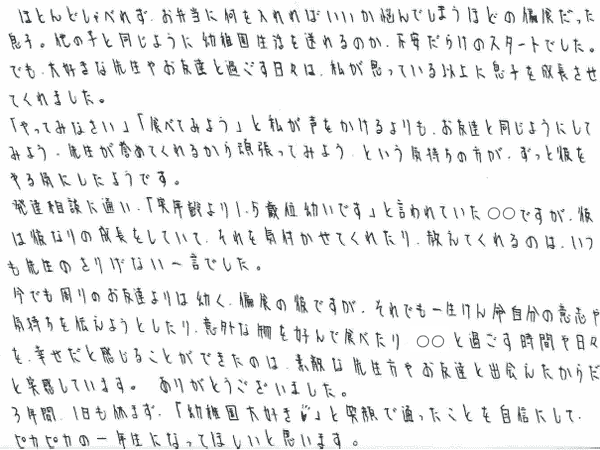 ほとんどしゃべれず、お弁当に何を入れればいいか悩んでしまうほどの偏食だった
息子。他の子と同じように幼稚園生活を送れるのか、不安だらけのスタートでした。
でも、大好きな先生やお友達と過ごす日々は、私が思っている以上に息子を成長させ
てくれました。
「やってみなさい」「食べてみよう」と私が声をかけるよりも、お友達と同じようにして
みよう、先生が誉めてくれるから頑張ってみよう、という気持ちの方が、ずっと彼を
やる気にしたようです。
発達相談に通い、「実年齢より1.5歳位幼いです」と言われていた○○ですが、彼
は彼なりの成長をしていて、それを気付かせてくれたり、教えてくれるのは、いつ
も先生のさりげない一言でした。
今でも周りのお友達よりは幼く、偏食の彼ですが、それでも一生けん命自分の意志や
気持ちを伝えようとしたり、意外な物を好んで食べたり ○○と過ごす時間や日々
を、幸せだと感じることができたのは、素敵な先生方やお友達と出会えたからだ
と実感しています。 ありがとうございました。
3年間、1日も休まず、「幼稚園大好き♡」と笑顔で通ったことを自信にして、
ピカピカの一年生になってほしいと思います。